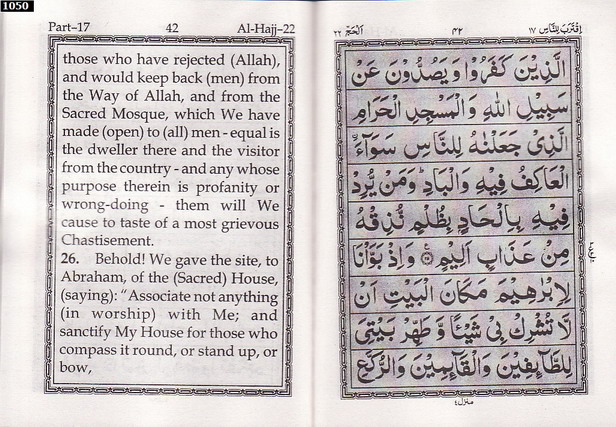 1050
Part–17 42 Al-Hajj–22
those who have rejected (Allah),
and would keep back (men) from
the Way of Allah, and from the
Sacred Mosque, which We have
made (open) to (all) men - equal is
the dweller there and the visitor
from the country - and any whose
purpose therein is profanity or
wrong-doing - them will We
cause to taste of a most grievous
Chastisement.
26. Behold! We gave the site, to
Abraham, of the (Sacred) House,
(saying): "Associate not anything
(in worship) with Me; and
sanctify My House for those who
compass it round, or stand up, or
bow,
اِقْتَرَبَ لِلنَّاسِ ١٧ ٤٢ اَلْحَجّ ٢٢
الَّذِيْنَ كَفَرُوْا وَ يَصُدُّوْنَ عَنْ
سَبِيْلِ اللّٰهِ وَالْمَسْجِدِ الْحَرَامِ
الَّذِيْ جَعَلْنٰهُ لِلنَّاسِ سَوَآءَۨ
الْعَاكِفُ فِيْهِ وَالْبَادِ ؕ وَمَنْ يُّرِدْ
فِيْهِ بِاِلْحَادٍۭ بِظُلْمٍ نُّذِقْهُ
مِنْ عَذَابٍ اَلِيْمٍ ۞ وَاِذْ بَوَّاْنَا
لِاِبْرٰهِيْمَ مَكَانَ الْبَيْتِ اَنْ
لَّا تُشْرِكْ بِيْ شَيْـًٔا وَّ طَهِّرْ بَيْتِيَ
لِلطَّآئِفِيْنَ وَالْقَآئِمِيْنَ وَالرُّكَّعِ
منزل٤